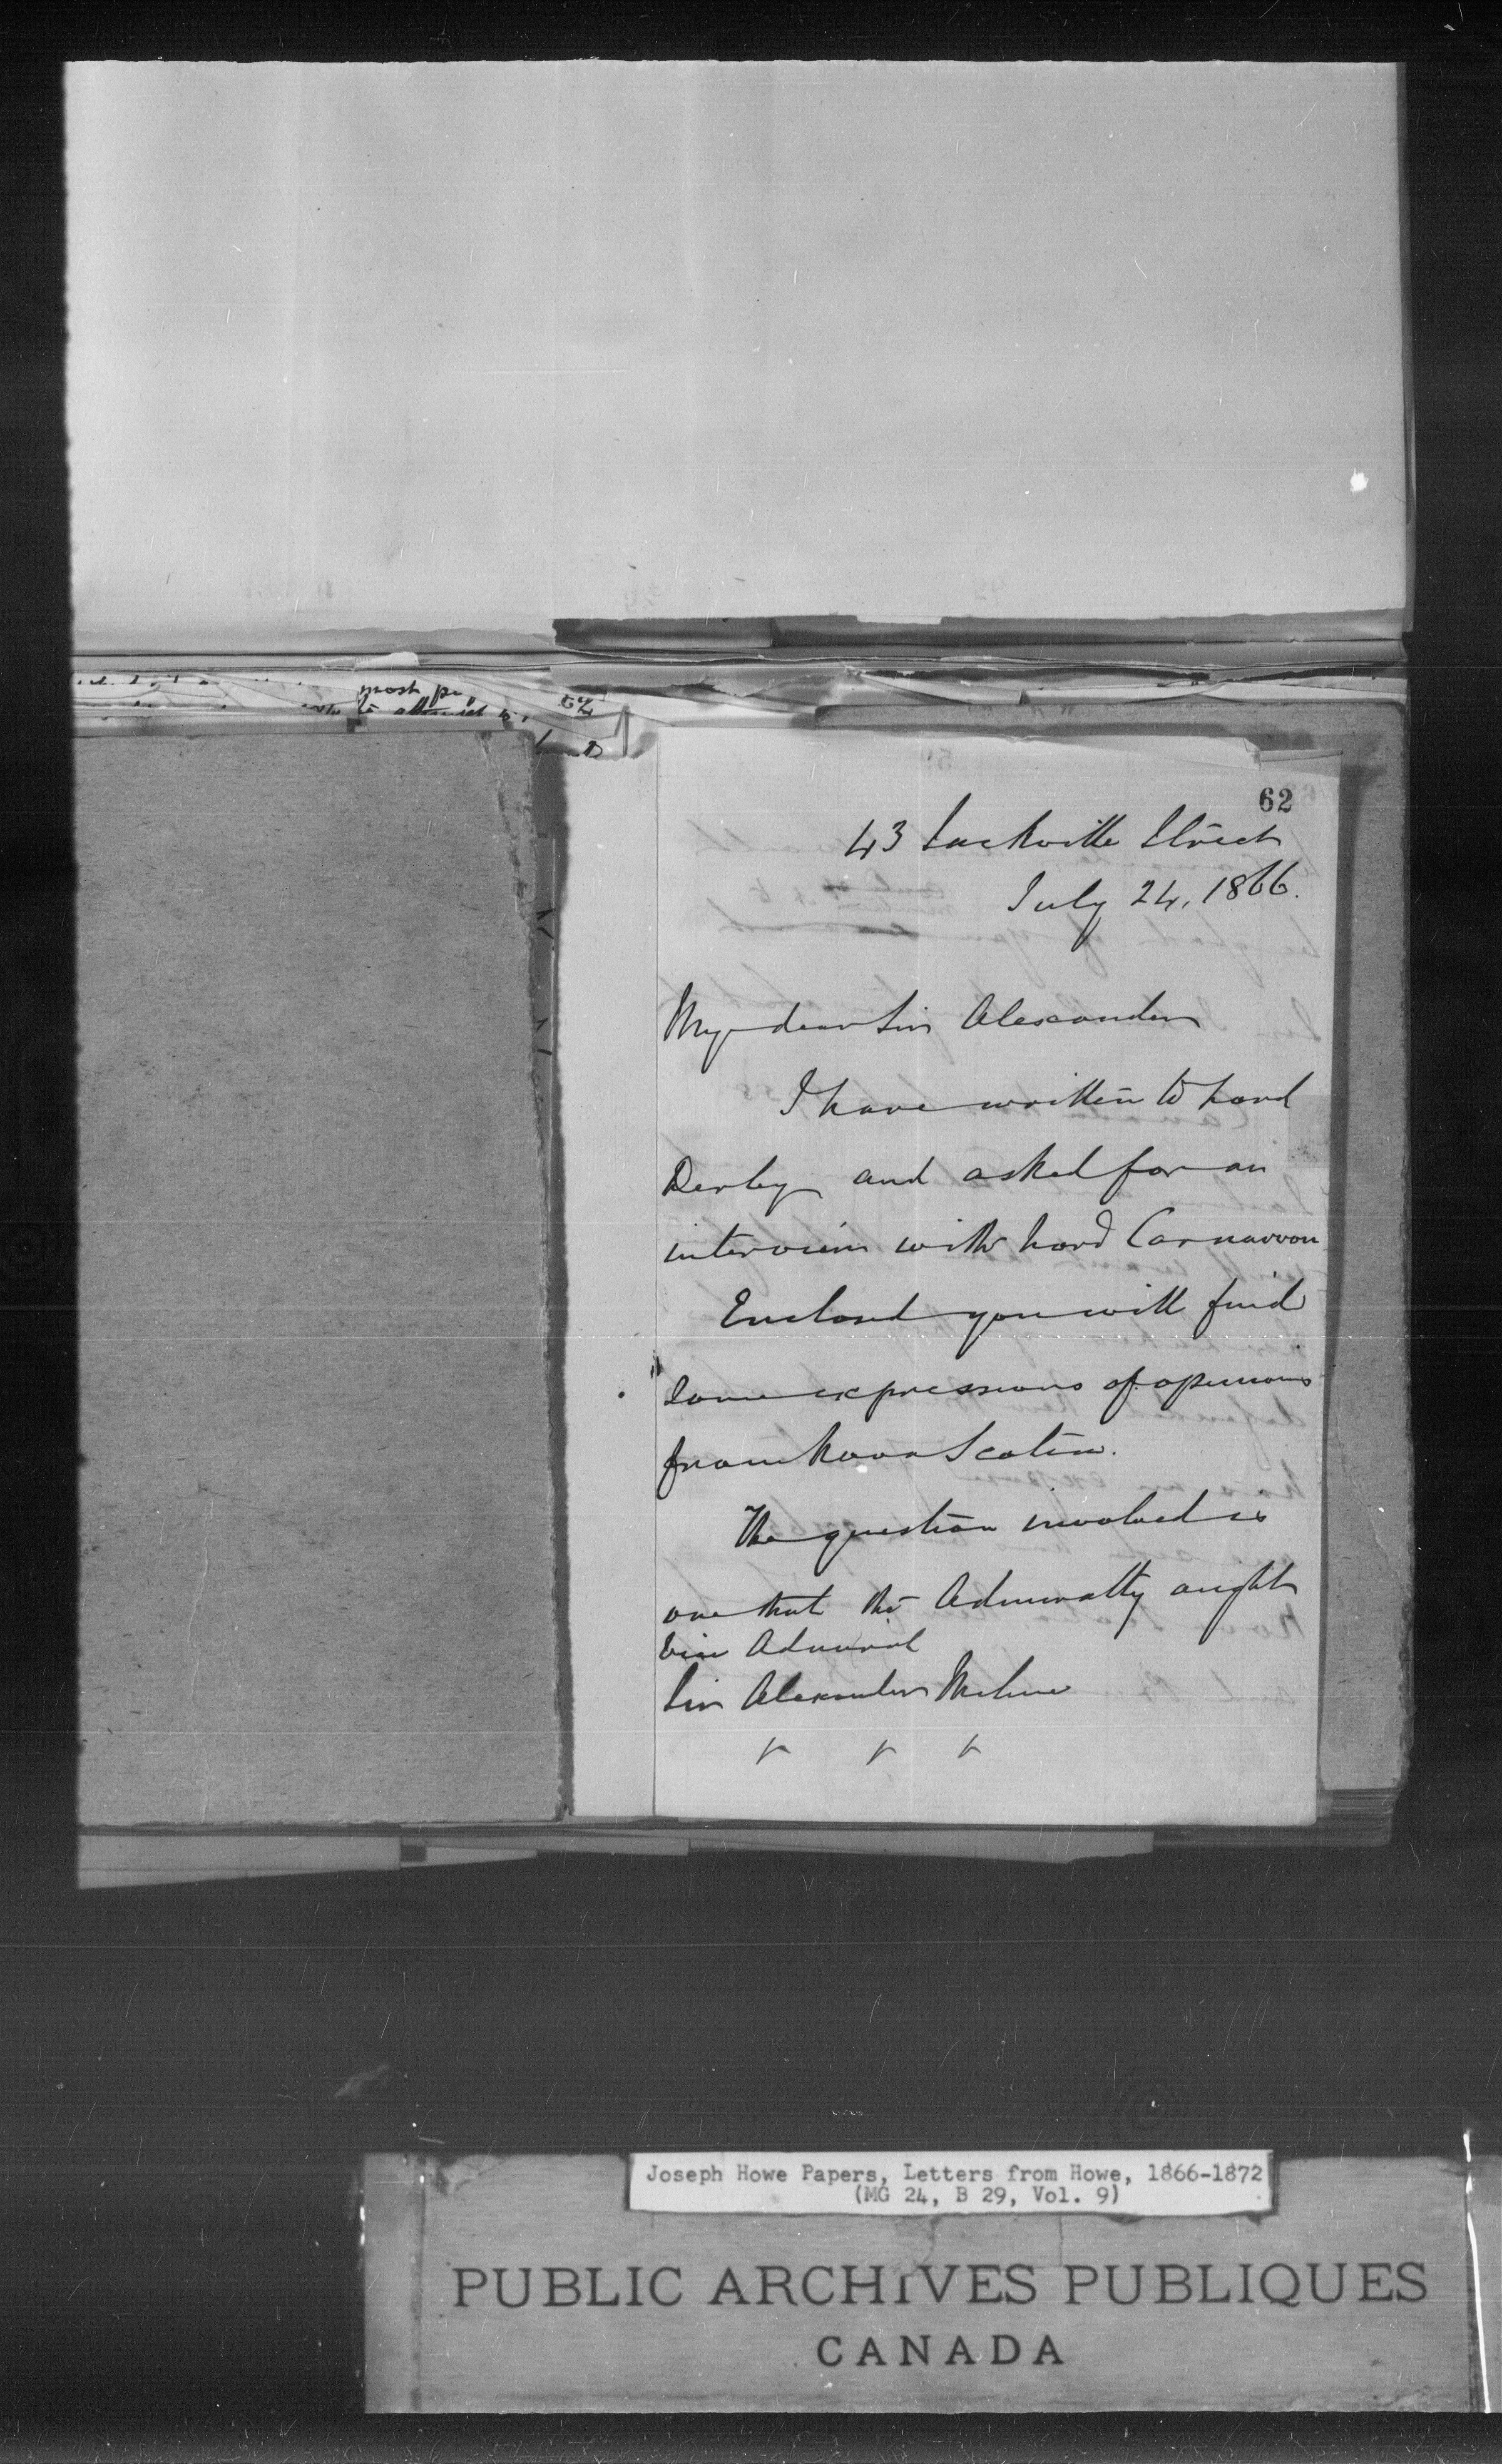 62
43 Sackville Street
July 24, 1866.
My dear Sir Alexander
I have written to Lord
Derby and asked for an
interview with Lord Carnarvon
Enclosed you will find
some expressions of opinions
from Nova Scotia.
The question involved is
one that the Admiralty ought
Vice Admiral
Sir Alexander Milne
Joseph Howe Papers, Letters from Howe, 1866-1872
(MG 24, B 29, Vol. 9)
PUBLIC ARCHIVES PUBLIQUES
CANADA